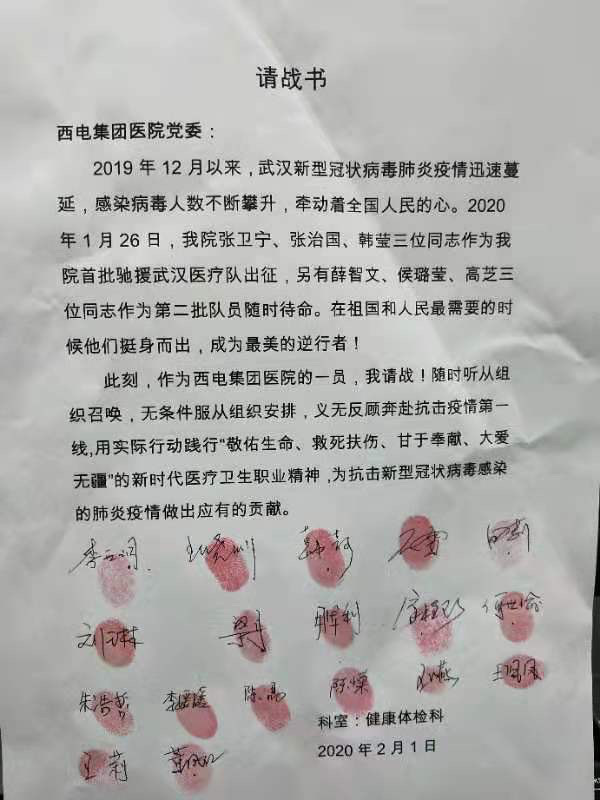 请战书
西电集团医院党委：
2019 年 12 月以来，武汉新型冠状病毒肺炎疫情迅速蔓
延，感染病毒人数不断攀升，牵动着全国人民的心。2020
年 1 月 26 日，我院张卫宁、张治国、韩莹三位同志作为我
院首批驰援武汉医疗队出征，另有薛智文、侯璐莹、高芝三
位同志作为第二批队员随时待命。在祖国和人民最需要的时
候他们挺身而出，成为最美的逆行者！
此刻，作为西电集团医院的一员，我请战！随时听从组
织召唤，无条件服从组织安排，义无反顾奔赴抗击疫情第一
线,用实际行动践行“敬佑生命、救死扶伤、甘于奉献、大爱
无疆”的新时代医疗卫生职业精神,为抗击新型冠状病毒感染
的肺炎疫情做出应有的贡献。
刘琳
朱浩哲 陈磊
科室：健康体检科
王莉
2020 年 2 月 1 日